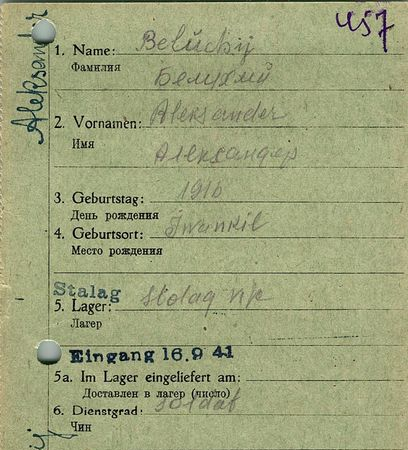 457
Aleksander
1. Name: Beluchij
Фамилия
Белухий
2. Vornamen: Aleksander
Имя
Александер
3. Geburtstag: 1916
День рождения
4. Geburtsort: Iwankil
Место рождения
Stalag
5. Lager: Stolag
Лагер
Eingang 16.9 41
5a. Im Lager eingeliefert am:
Доставлен в лагер (число)
6. Dienstgrad: Soldat
Чин